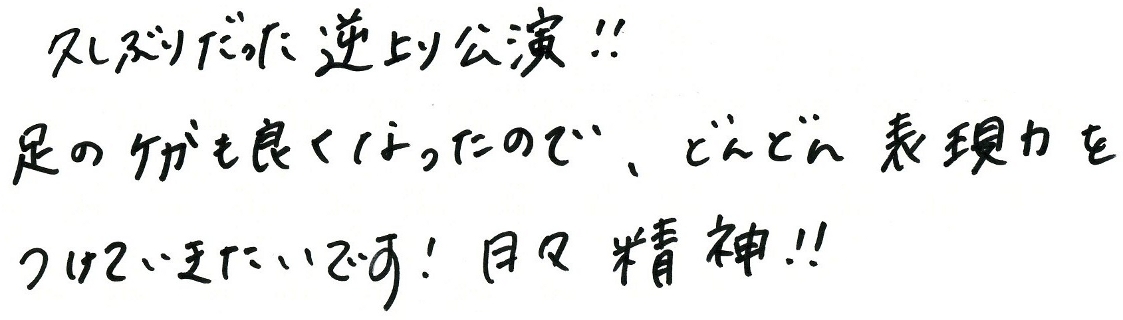 久しぶりだった逆上り公演!!
足のケガも良くなったので、どんどん表現力を
つけていきたいです！日々精神!!